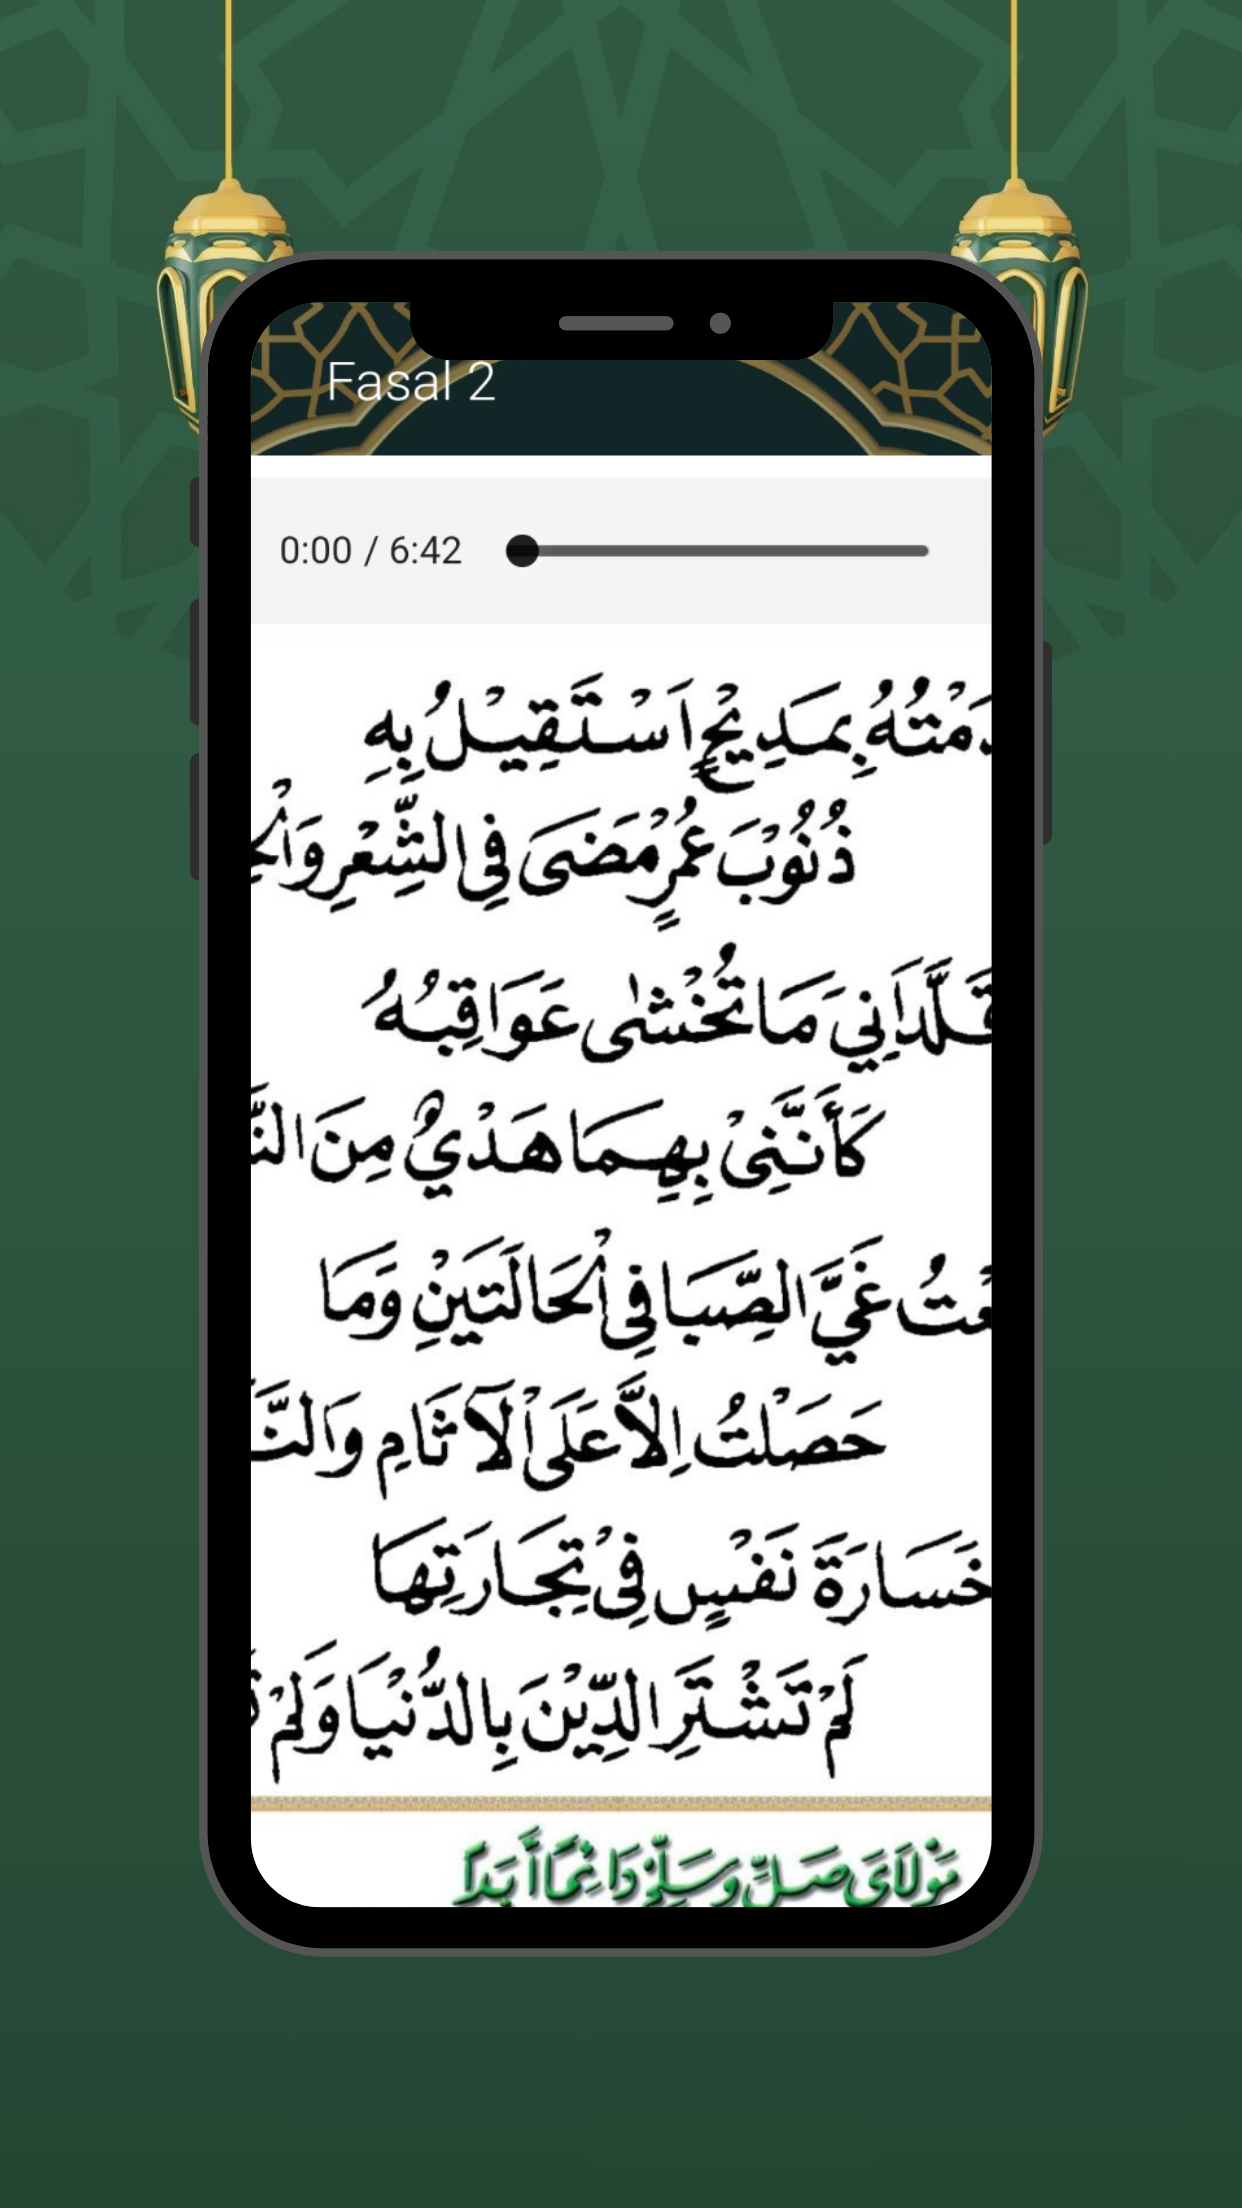 Fasal 2
0:00 / 6:42
دَمْتُهُ بِمَدِيْحٍ اَسْتَقِيْلُ بِهِ
ذُنُوْبَ عُمْرٍ مَضَى فِى الشِّعْرِ وَالْخِ
قَلَّدَانِيَ مَا تُخْشٰى عَوَاقِبُهُ
كَأَنَّنِيْ بِهِمَا هَدْيٌ مِنَ النَّ
عْتُ غَيَّ الصِّبَا فِى الْحَالَتَيْنِ وَمَا
حَصَلْتُ اِلاَّ عَلَى اْلآثَامِ وَالنَّ
خَسَارَةَ نَفْسٍ فِيْ تِجَارَتِهَا
لَمْ تَشْتَرِ الدِّيْنَ بِالدُّنْيَا وَلَمْ تَ
مَوْلَايَ صَلِّ وَسَلِّمْ دَائِمًا أَبَدًا